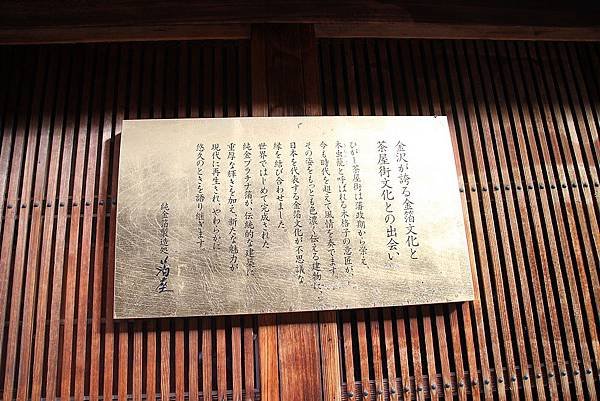 金沢が誇る金箔文化と
茶屋街文化との出会い
ひがし茶屋街は藩政期から栄え、
木虫籠と呼ばれる木格子の意匠が、
今も時代を超えて風情を奏でます
その姿をもっとも色濃く伝える建物に、
日本を代表する金箔文化が不思議な
縁を結び合わせました。
世界ではじめて完成された
純金プラチナ箔が、伝統的な建築に
重厚な輝きを加え、新たな魅力が
現代に再生され、やわらかに
悠久のときを語り継ぎます
純金箔製造処
箔座